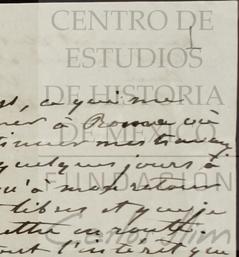 CENTRO DE
ESTUDIOS
DE HISTORIA
DE MÉXICO
FUNDACIÓN
Carlos Slim
1
, ce qui me
à Rome où
tinuer mes travaux
quelques jours à
qu'à mon retour
libres et que je
ettre en route.
out l'intérêt que